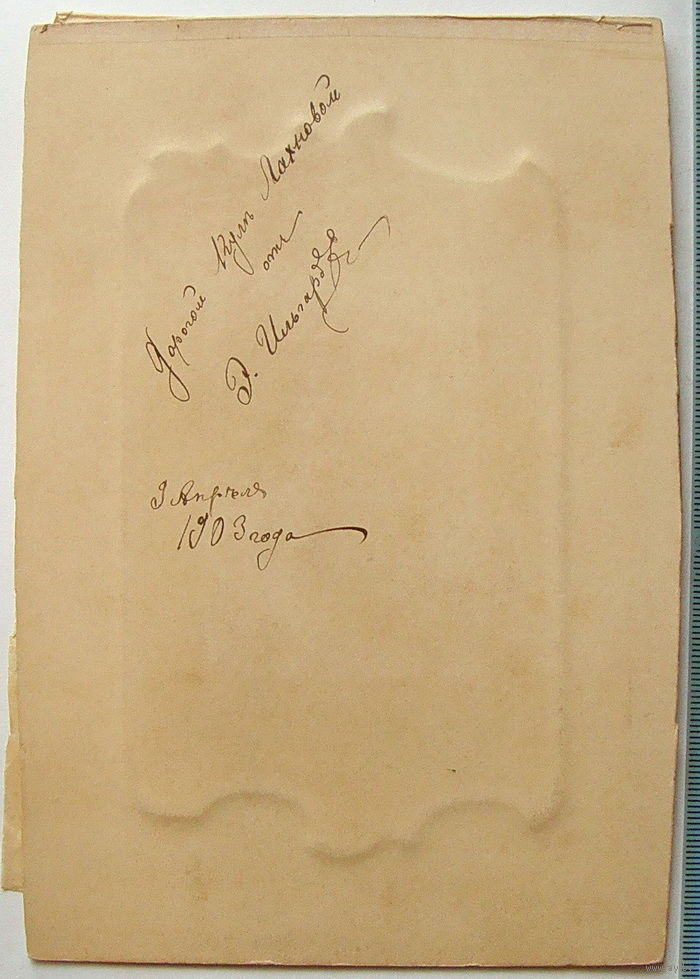 Дорогой Кулѣ Лахновой
отъ
Р. Ильгард
9 Апрѣля
1903 года